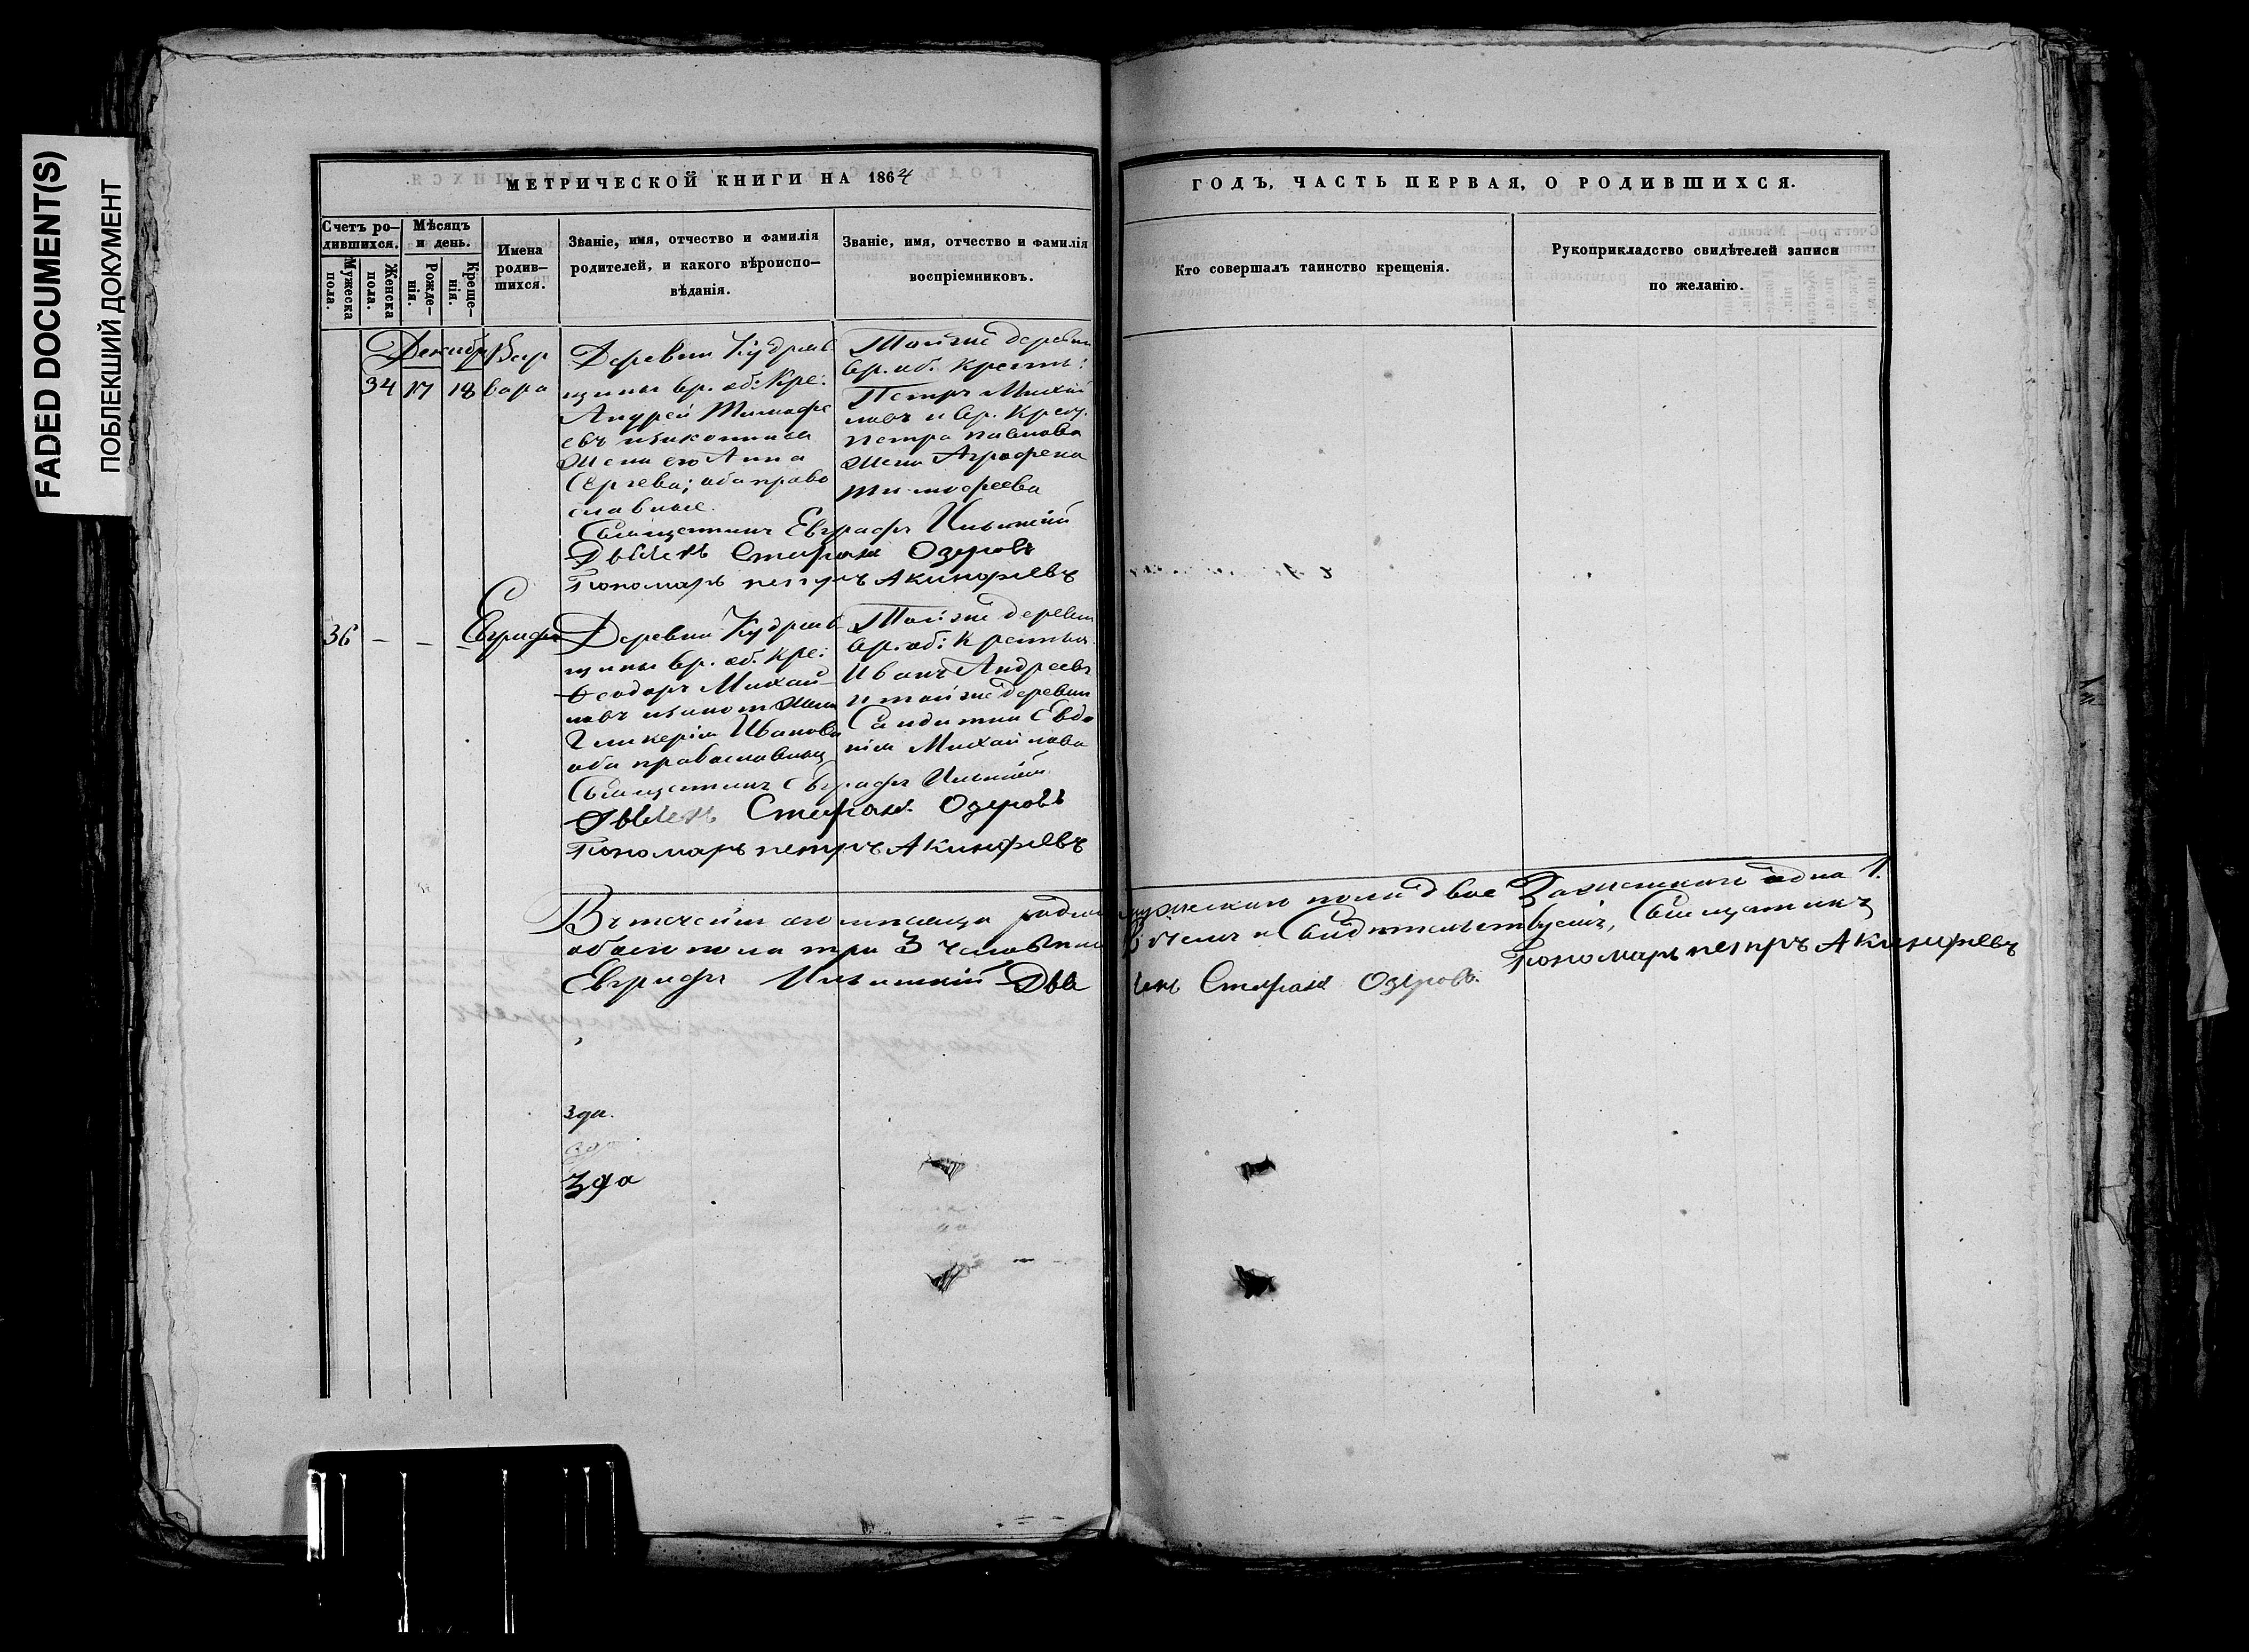 FADED DOCUMENT(S)
ПОБЛЕКШИЙ ДОКУМЕНТ
МЕТРИЧЕСКОЙ КНИГИ НА 1864
ГОДЪ, ЧАСТЬ ПЕРВАЯ, О РОДИВШИХСЯ.
Счетъ ро-
дившихся.
Мужеска
пола.
Женска
пола.
Мѣсяцъ
и день.
Рожде-
нія.
Креще-
нія.
Имена
родив-
шихся.
Званіе, имя, отчество и фамилія
родителей, и какого вѣроиспо-
вѣданія.
Званіе, имя, отчество и фамилія
воспріемниковъ.
Кто совершалъ таинство крещенія.
Рукоприкладство свидѣтелей записи
по желанію.
Декабрь
34 17 18
Вар
вара
Деревни Кудрев
щины вр. об: Кре:
Андрей Тимофе
евъ и законная
жена его Анна
Сергева; оба право
славные.
Тойже деревни
вр. об. крестн:
Петръ Михай
ловъ и вр. Крест.
петра павлова
жена Аграфена
тимофеева
Священникъ Евграфъ Ильинскій
Дьячекъ Стефанъ Озеровъ
Пономарь петръ Акинфиевъ
36 - - -
Евграфъ
Деревни Кудрев
щины вр. об. Кре:
Ѳеодоръ Михай-
ловъ и законт жена
Гликерія Иванова
оба православныя
Тойже деревни
вр. об: Крестья
Иванъ Андреевъ
и тойже деревни
Евдо
кія Михайлова
Священникъ Евграфъ Ильинскій
Дьячекъ Стефанъ Озеровъ
Пономарь петръ Акинфиевъ
Въ течении сего месяца родилось мужескаго пола двое 2 а женскаго одна 1.
обоего пола три 3 человека въ чемъ и свидетельствуемъ, Священникъ
Евграфъ Ильинскій Дьячекъ Стефанъ Озеровъ. Пономарь петръ Акинфиевъ